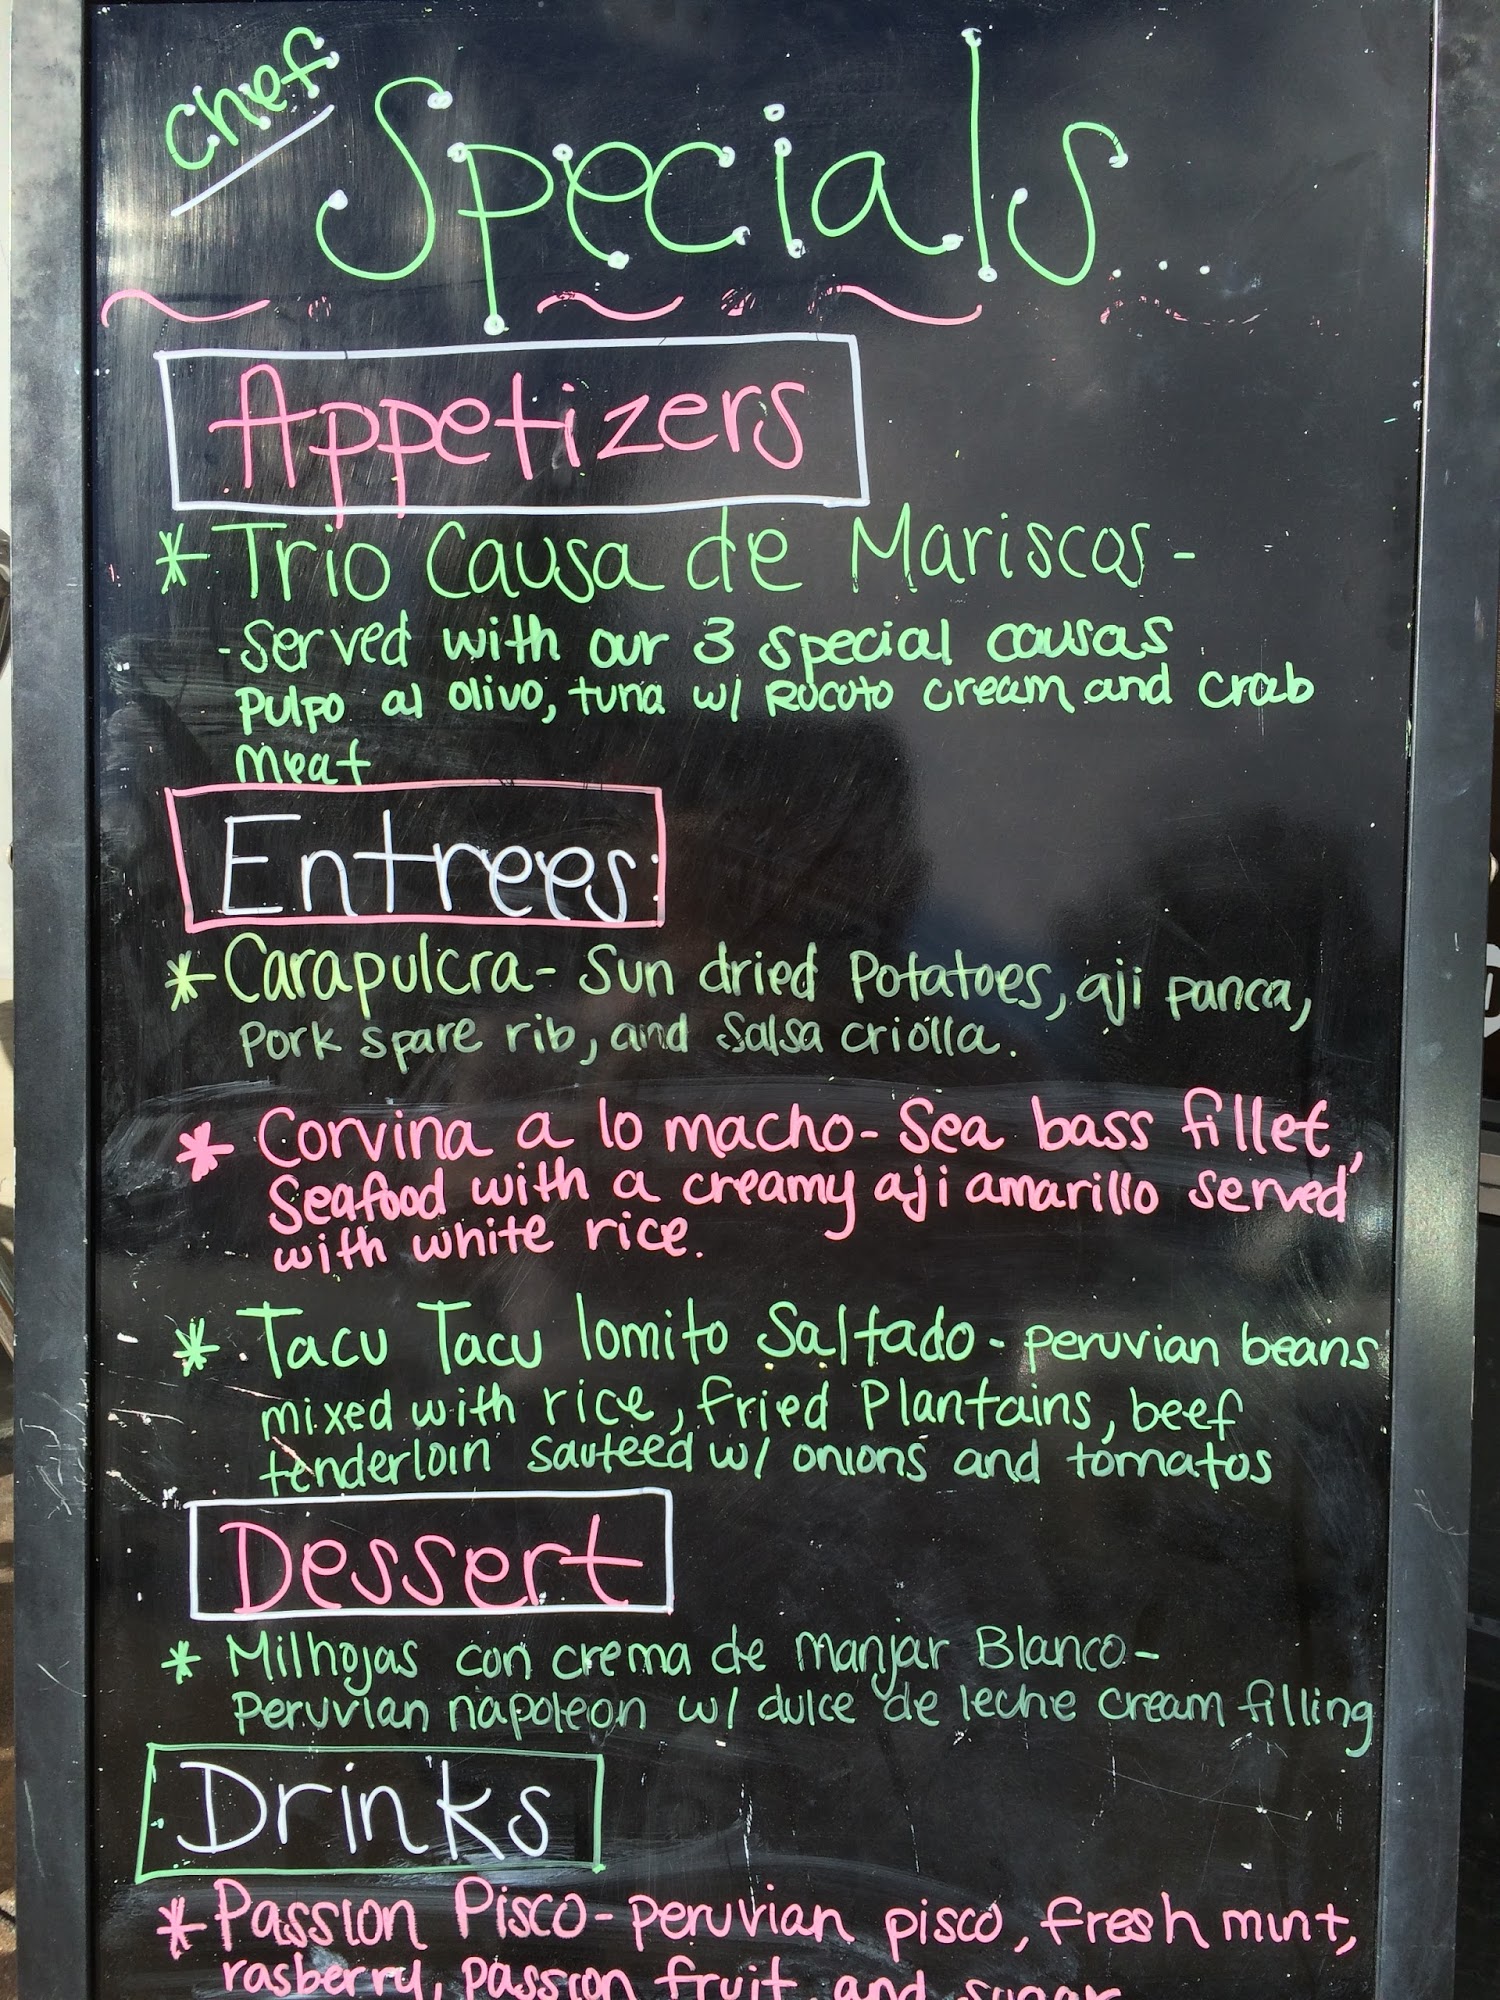 Chef
Specials....
Appetizers
* Trio Causa de Mariscos -
- Served with our 3 special causas
Pulpo al olivo, tuna w/ Rocoto cream and crab
meat
Entrees:
* Carapulcra - Sun dried Potatoes, aji panca,
Pork spare rib, and Salsa criolla.
* Corvina a lo macho - Sea bass fillet,
Seafood with a creamy aji amarillo served
with white rice.
* Tacu Tacu lomito Saltado - peruvian beans
mixed with rice, fried Plantains, beef
tenderloin sauteed w/ onions and tomatos
Dessert
* Milhojas con crema de manjar Blanco -
Peruvian napoleon w/ dulce de leche cream filling
Drinks
* Passion Pisco - peruvian pisco, fresh mint,
rasberry, passion fruit and sugar